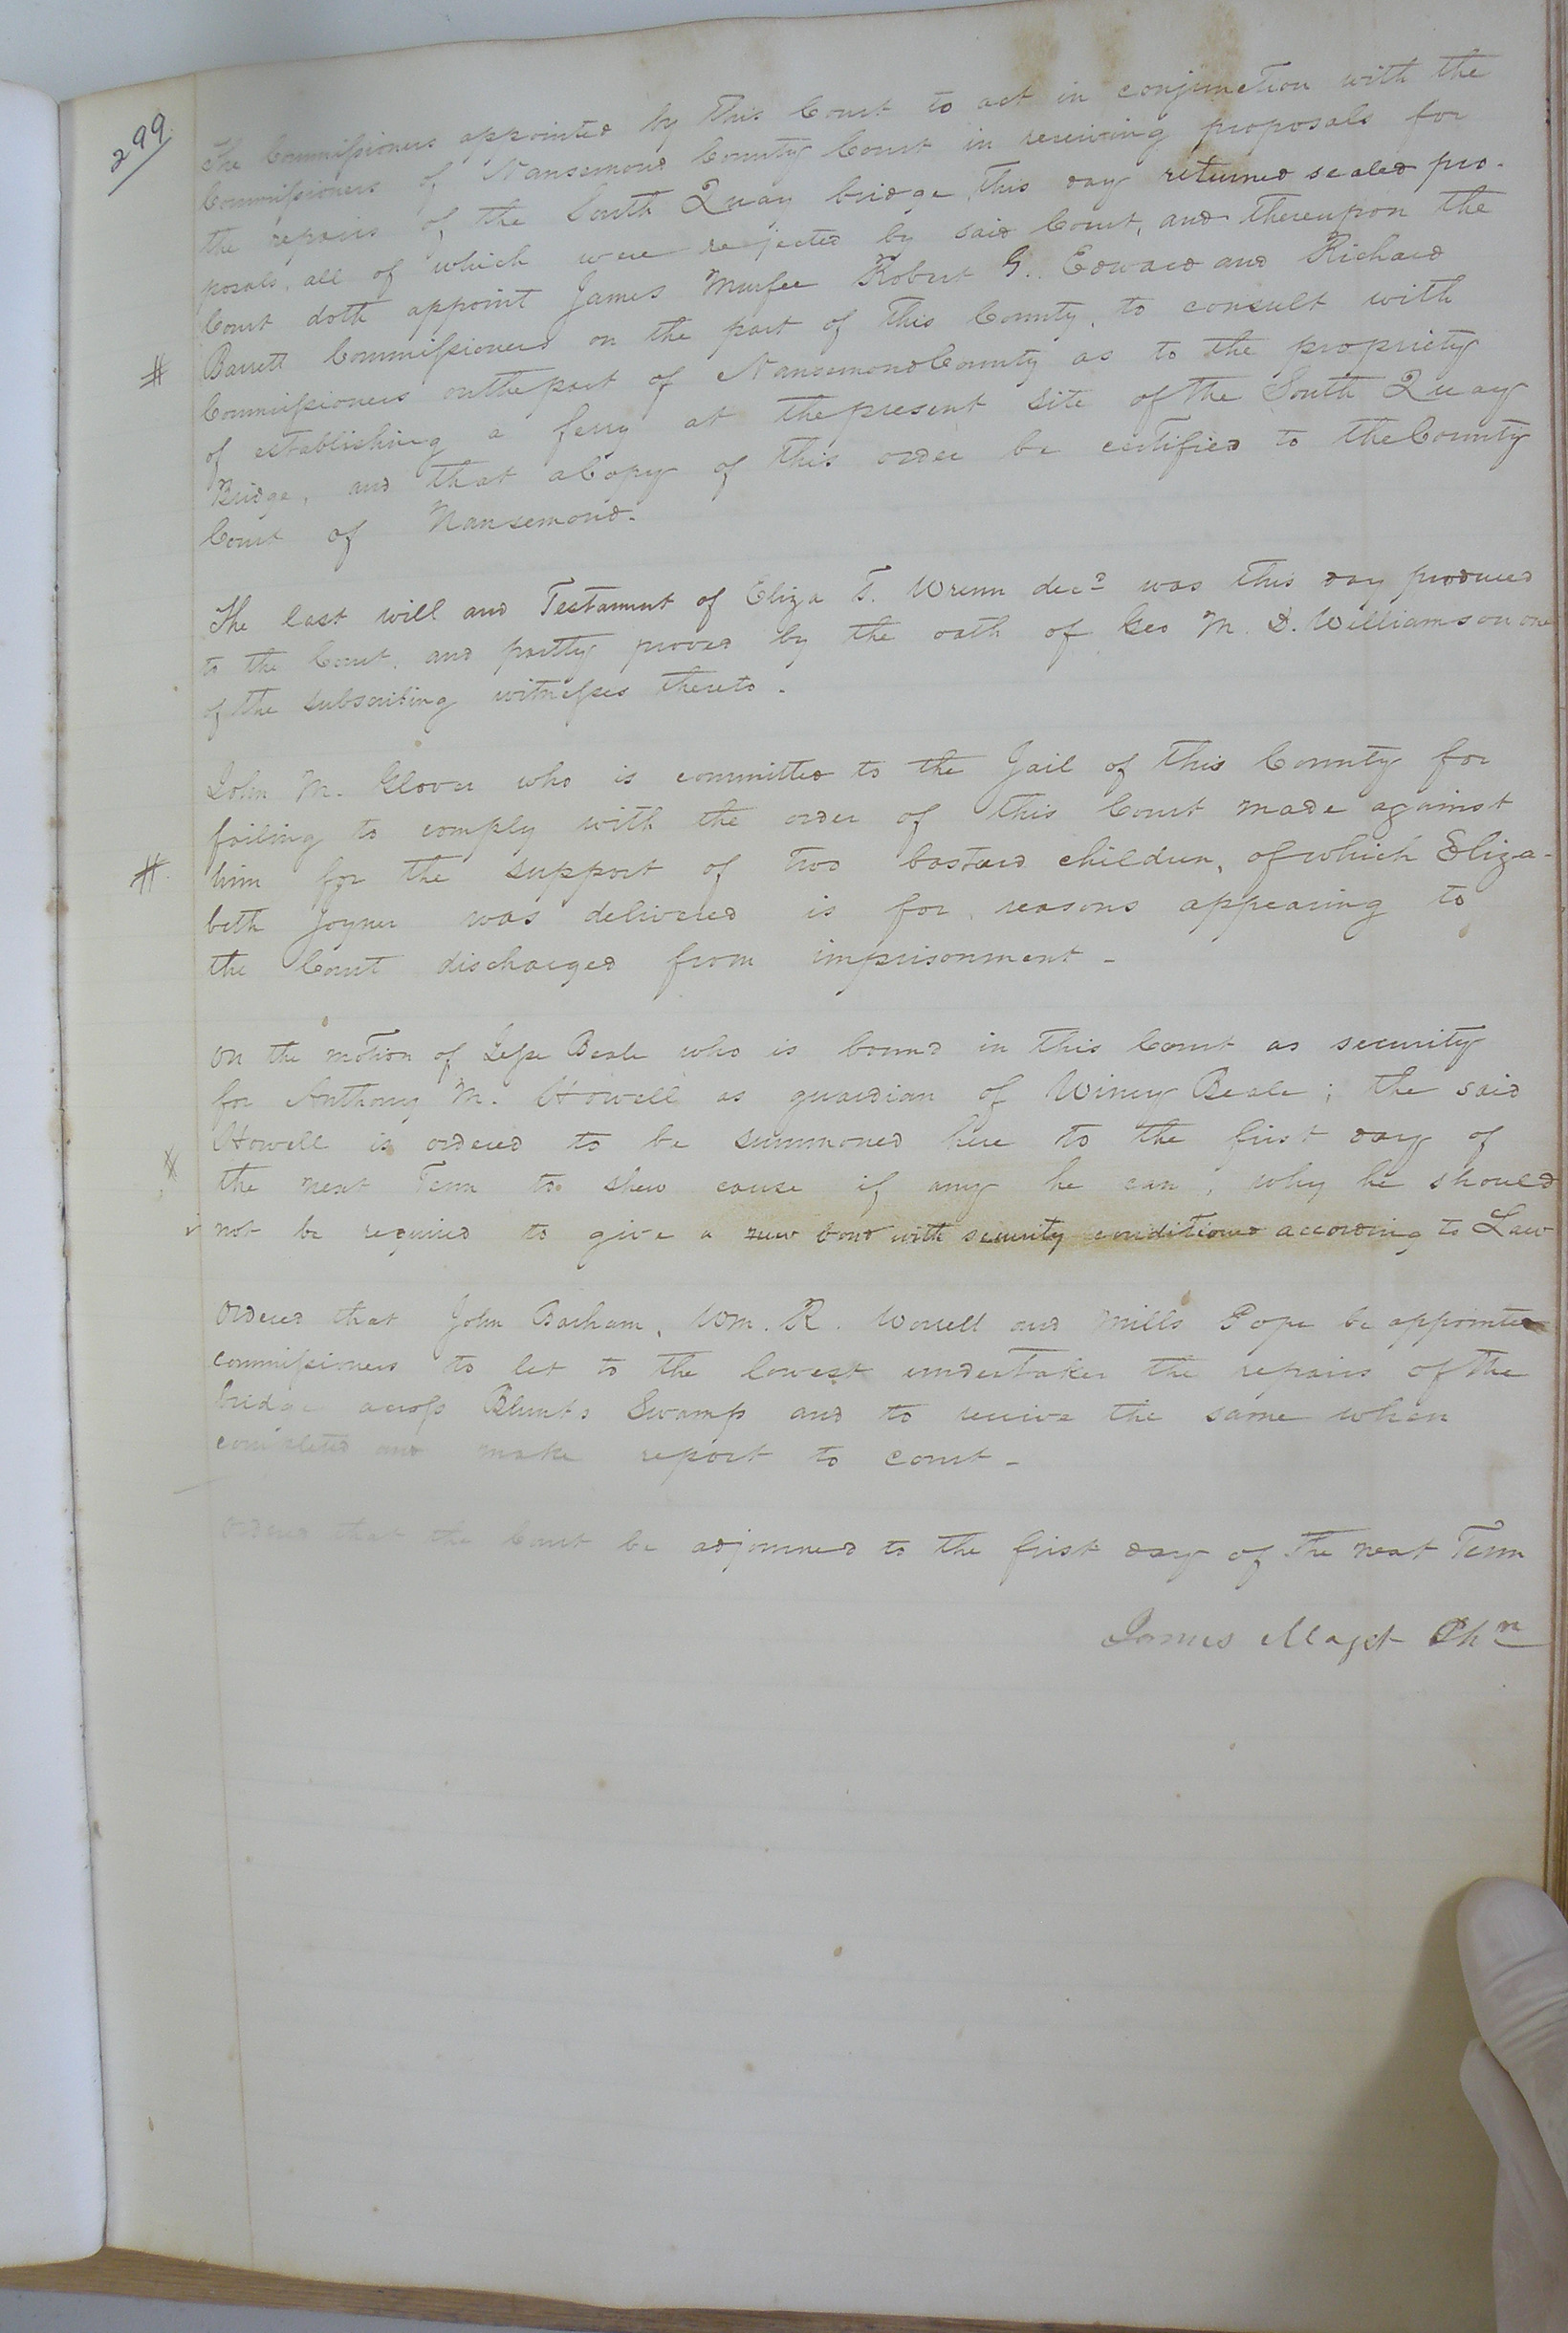 299
The Commissioners appointed by this Court to act in conjunction with the
Commissioners of Nansemond County Court in receiving proposals for
the repairs of the South Quay bridge, this day returned sealed pro-
posals, all of which were rejected by said Court, and thereupon the
Court doth appoint James Murfee Robert G. Edward and Richard
# Barrett Commissioners on the part of this County, to consult with
Commissioners on the part of Nansemond County as to the propriety
of establishing a ferry at the present site of the South Quay
Bridge, and that a Copy of this order be certified to the County
Court of Nansemond.
The last will and Testament of Eliza T. Wrenn decd was this day produced
to the Court, and partly proved by the oath of Geo M. D. Williamson one
of the subscribing witnesses thereto.
John M. Glover who is committed to the Jail of this County for
failing to comply with the order of this Court made against
# him for the support of two bastard children, of which Eliza-
beth Joyner was delivered is for reasons appearing to
the Court discharged from imprisonment -
On the motion of Jesse Beale who is bound in this Court as security
for Anthony M. Howell as guardian of Winny Beale; the said
Howell is ordered to be summoned here to the first day of
# the next Term to shew cause if any he can, why he should
not be required to give a new bond with security conditioned according to Law
Ordered that John Barham, Wm. R. Worrell and Mills Pope be appointed
commissioners to let to the lowest undertaker the repairs of the
bridge across Blunts Swamp and to receive the same when
completed and make report to court -
Ordered that the Court be adjourned to the first day of the next Term
James Maget Chn